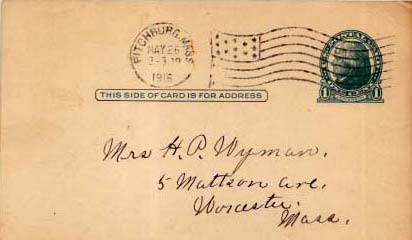 FITCHBURG, MASS.
MAY 26
1916
THIS SIDE OF CARD IS FOR ADDRESS
1 1
Mrs H. P. Wyman.
5 Mattson Ave.
Worcester.
Mass.